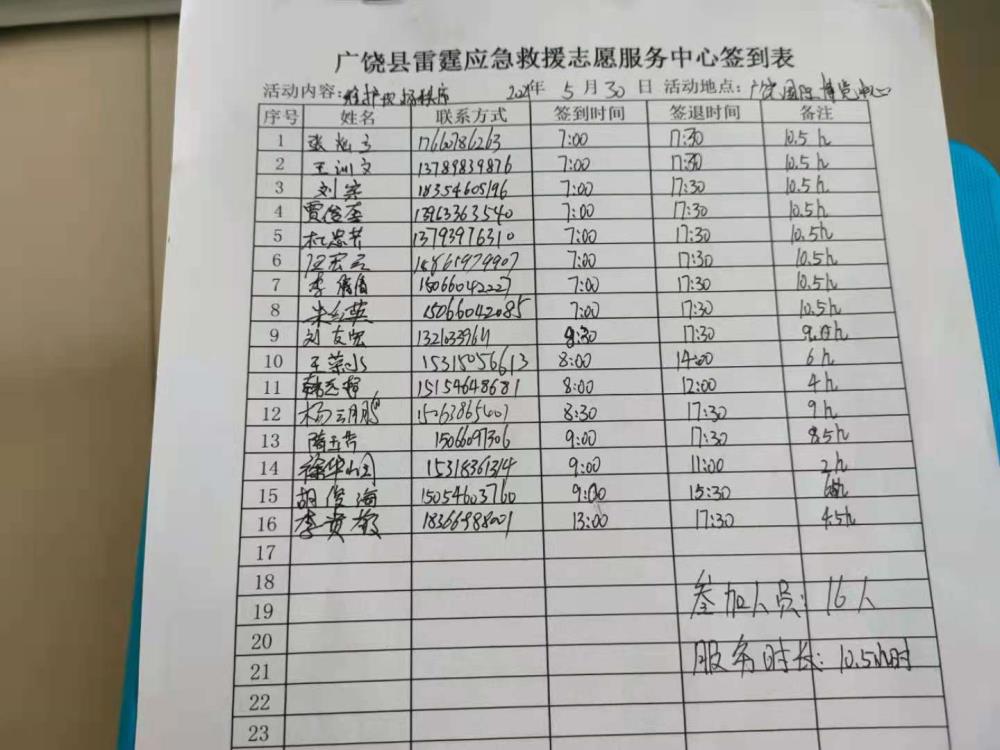 广饶县雷霆应急救援志愿服务中心签到表
活动内容:维护现场秩序 年 5月30日 活动地点:广饶国际博览中心
序号 姓名 联系方式 签到时间 签退时间 备注
1 7:00 17:30 10.5h
2 王训文 13789839876 7:00 17:30 10.5h
3 18354605196 7:00 17:30 10.5h
4 13963363540 7:00 17:30 10.5h
5 杜忠芳 13793976310 7:00 17:30 10.5h
6 7:00 17:30 10.5h
7 15066042227 7:00 17:30 10.5h
8 朱红英 15066042085 7:00 17:30 10.5h
9 刘友宏 17:30
10 王荣水 15315056613 8:00 14:00 6h
11 15154648681 8:00 12:00 4h
12 杨明鹏 8:30 17:30 9h
13 隋玉芳 9:00 17:30 8.5h
14 9:00 11:00 2h
15 胡俊海 15054603760 9:00 15:30
16 李贵敏 13:00 17:30 4.5h
17
18
19 参加人员:16人
20
21 服务时长:10.5小时
22
23